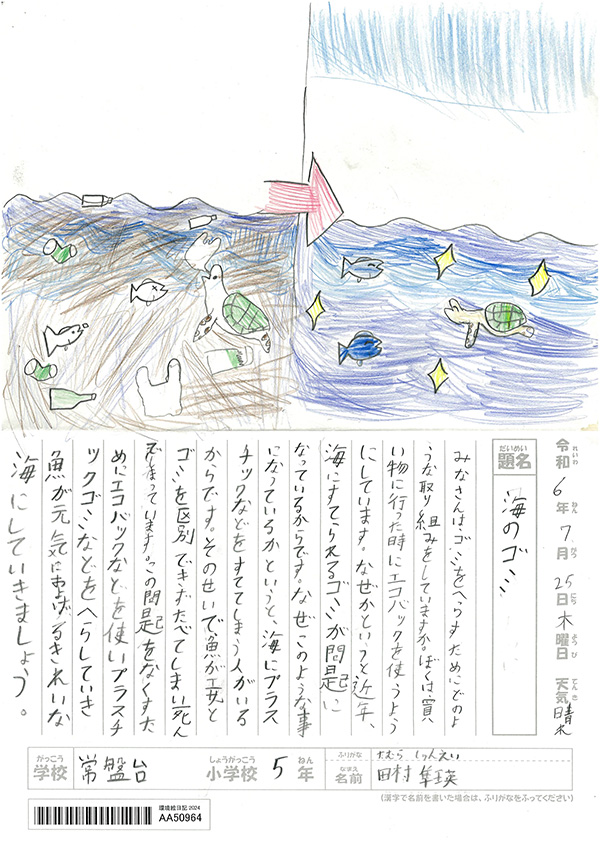 令和6年7月25日木曜日 天気 晴れ
題名 海のゴミ
みなさんはゴミをへらすためにどのよ
うな取り組みをしていますか。ぼくは、買
い物に行った時にエコバックを使うよう
にしています。なぜかというと近年、
海にすてられるゴミが問起に
なっているからです。なぜこのような事
になっているかというと、海にプラス
チックなどをすててしまう人がいる
からです。そのせいで、魚がエサと
ゴミを区別できずたべてしまい死ん
でしまっています。この問起をなくすた
めにエコバックなどを使いプラスチ
ックゴミなどをへらしていき
魚が元気におよげるきれいな
海にしていきましょう。
学校 常盤台 小学校 5年
ふりがな たむら しゅんえい
名前 田村 隼瑛
(漢字で名前を書いた場合は、ふりがなをふってください)
環境絵日記 2024
AA50964